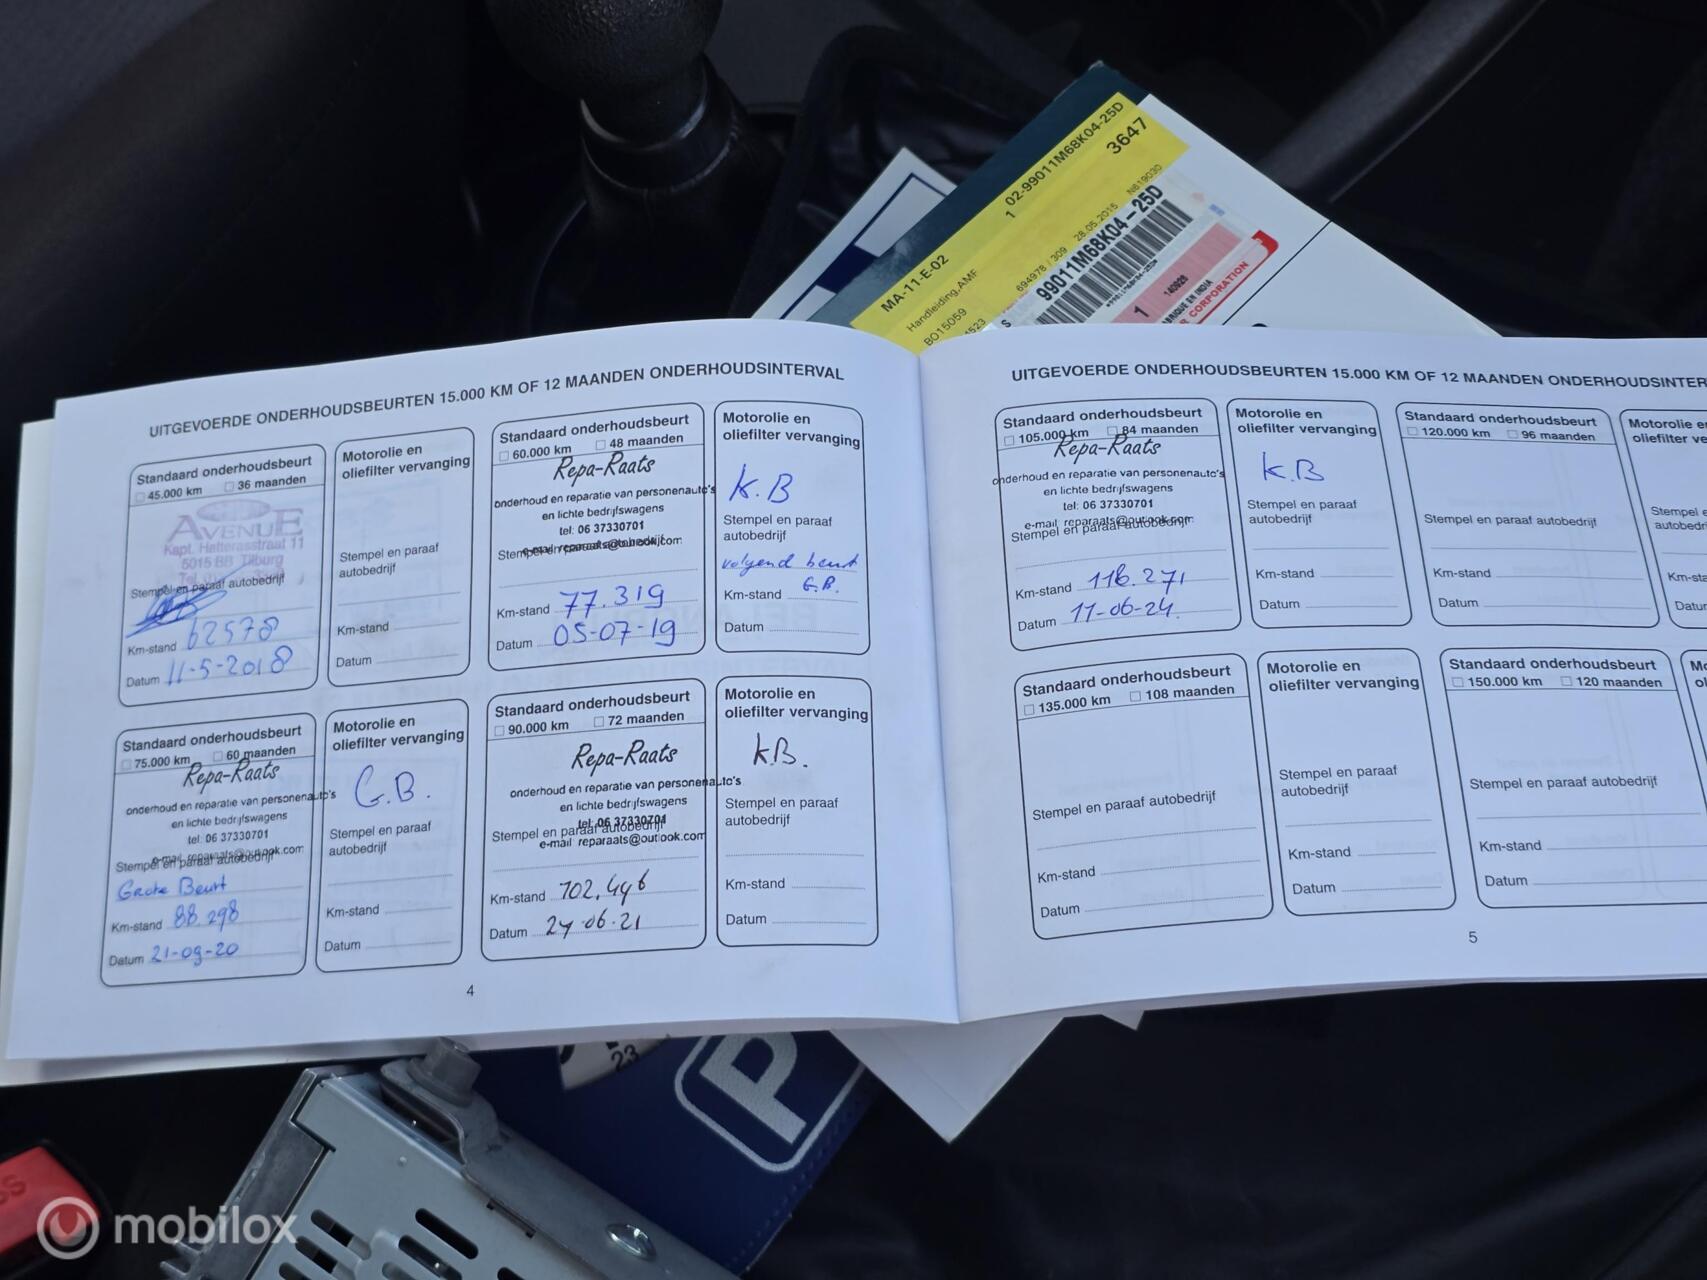 02-99011M68K04-25D
1
3647
MA-11-E-02
Handleiding,AMF
BO15059
694978 / 309 28.05.2015 N619030
99011M68K04-25D
1
140928
CORPORATION
UITGEVOERDE ONDERHOUDSBEURTEN 15.000 KM OF 12 MAANDEN ONDERHOUDSINTERVAL
Standaard onderhoudsbeurt
45.000 km 36 maanden
AVENUE
Kapt. Hatterasstraat 11
5015 BB Tilburg
Stempel en paraaf autobedrijf
Km-stand 62578
Datum 11-5-2018
Motorolie en
oliefilter vervanging
Stempel en paraaf
autobedrijf
Km-stand
Datum
Standaard onderhoudsbeurt
60.000 km 48 maanden
Repa-Raats
onderhoud en reparatie van personenauto's
en lichte bedrijfswagens
tel: 06 37330701
Stempel en paraaf autobedrijf
e-mail reparaats@outlook.com
Km-stand 77.319
Datum 05-07-19
Motorolie en
oliefilter vervanging
K.B
Stempel en paraaf
autobedrijf
volgend beurt
G.B.
Km-stand
Datum
Standaard onderhoudsbeurt
75.000 km 60 maanden
Repa-Raats
onderhoud en reparatie van personenauto's
en lichte bedrijfswagens
tel: 06 37330701
e-mail reparaats@outlook.com
Stempel en paraaf autobedrijf
Grote Beurt
Km-stand 88.298
Datum 21-09-20
Motorolie en
oliefilter vervanging
G.B.
Stempel en paraaf
autobedrijf
Km-stand
Datum
Standaard onderhoudsbeurt
90.000 km 72 maanden
Repa-Raats
onderhoud en reparatie van personenauto's
en lichte bedrijfswagens
tel: 06 37330701
Stempel en paraaf autobedrijf
e-mail reparaats@outlook.com
Km-stand 102.446
Datum 24-06-21
Motorolie en
oliefilter vervanging
K.B.
Stempel en paraaf
autobedrijf
Km-stand
Datum
4
UITGEVOERDE ONDERHOUDSBEURTEN 15.000 KM OF 12 MAANDEN ONDERHOUDSINTER
Standaard onderhoudsbeurt
105.000 km 84 maanden
Repa-Raats
onderhoud en reparatie van personenauto's
en lichte bedrijfswagens
tel: 06 37330701
e-mail reparaats@outlook.com
Stempel en paraaf autobedrijf
Km-stand 116.271
Datum 11-06-24.
Motorolie en
oliefilter vervanging
K.B
Stempel en paraaf
autobedrijf
Km-stand
Datum
Standaard onderhoudsbeurt
120.000 km 96 maanden
Stempel en paraaf autobedrijf
Km-stand
Datum
Motorolie e
oliefilter ve
Stempel e
autobedr
Km-sta
Datur
Standaard onderhoudsbeurt
135.000 km 108 maanden
Stempel en paraaf autobedrijf
Km-stand
Datum
Motorolie en
oliefilter vervanging
Stempel en paraaf
autobedrijf
Km-stand
Datum
Standaard onderhoudsbeurt
150.000 km 120 maanden
Stempel en paraaf autobedrijf
Km-stand
Datum
5
23
P
mobilox